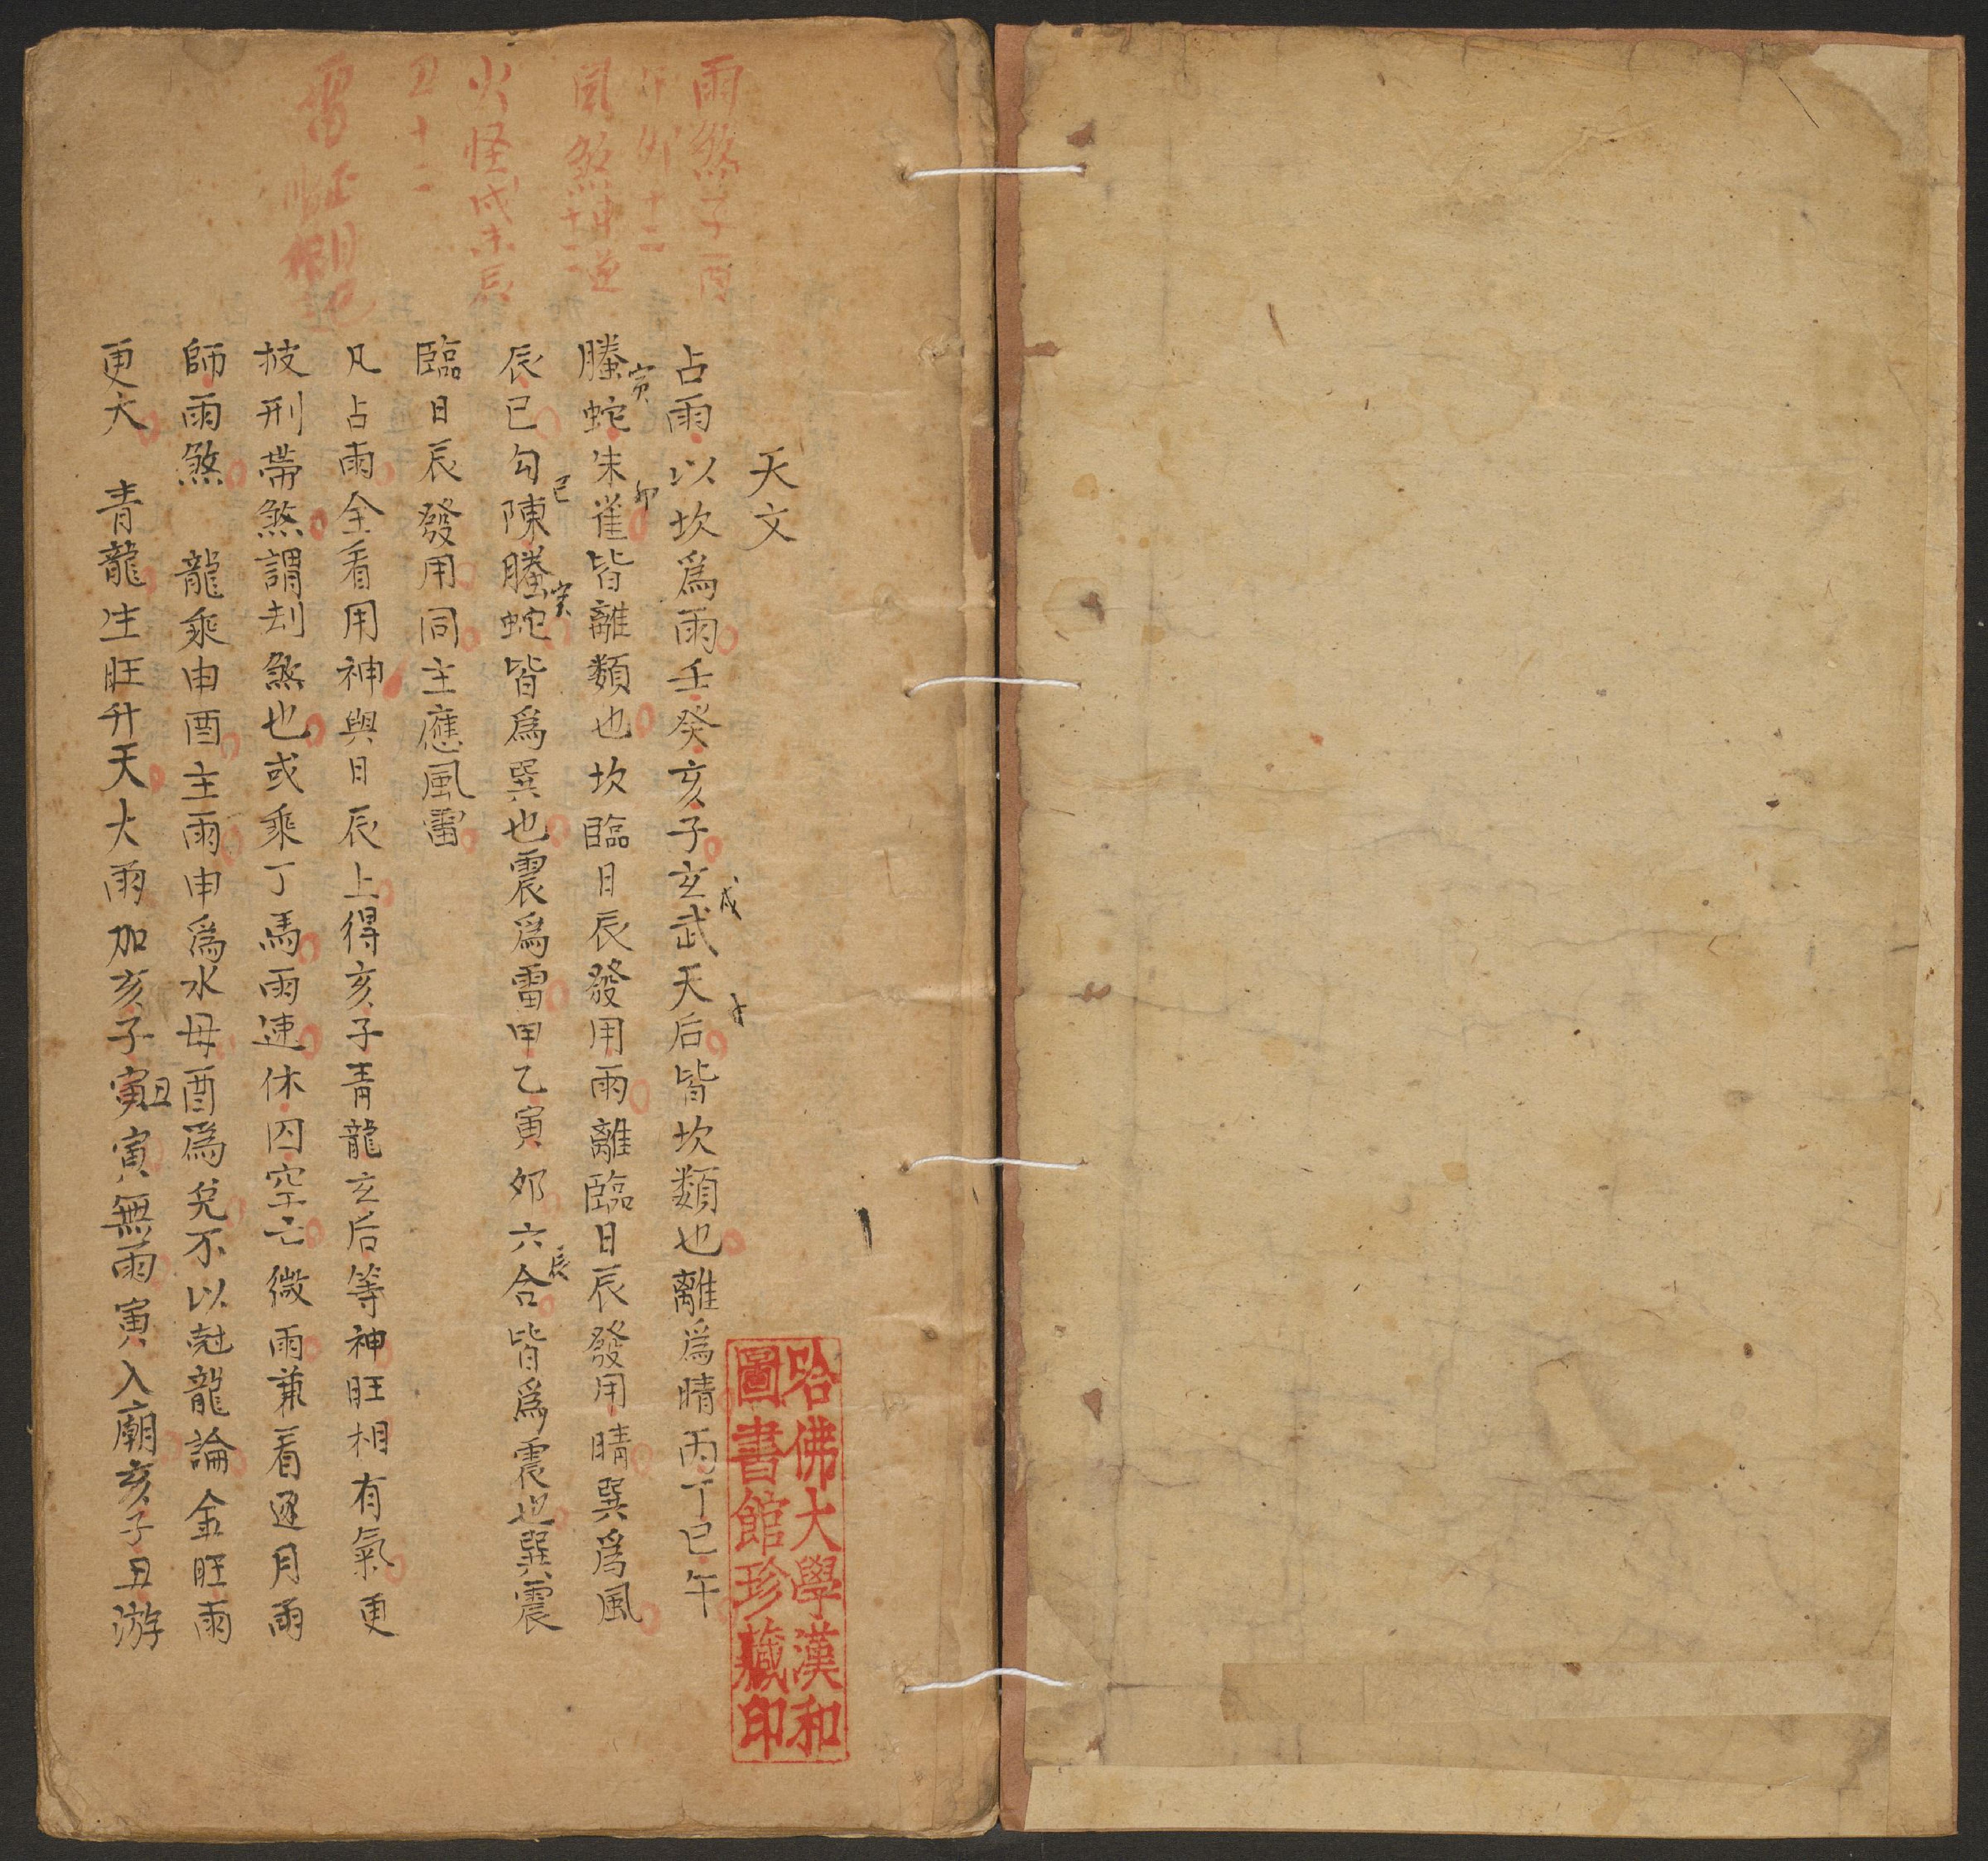 天文
占雨以坎爲雨壬癸亥子玄武天后皆坎類也離爲晴丙丁巳午
戌
螣蛇朱雀皆離類也坎臨日辰發用雨離臨日辰發用晴巽爲風
寅 卯
辰巳勾陳螣蛇皆爲巽也震爲雷甲乙寅卯六合皆爲震也巽震
巳 寅 辰
臨日辰發用同主應風雷
凡占雨全看用神與日辰上得亥子青龍玄后等神旺相有氣更
披刑帶煞謂刦煞也或乘丁馬雨速休囚空亡微雨兼看逐月雨
師雨煞 龍乘申酉主雨申爲水母酉爲兌不以尅龍論金旺雨
更大 青龍生旺升天大雨加亥子寅丑寅無雨寅入廟亥子丑游
雨煞子酉
卯 十二
風煞申逆
十二
火怪戌未辰
丑十二
雷
哈佛大學漢和
圖書館珍藏印